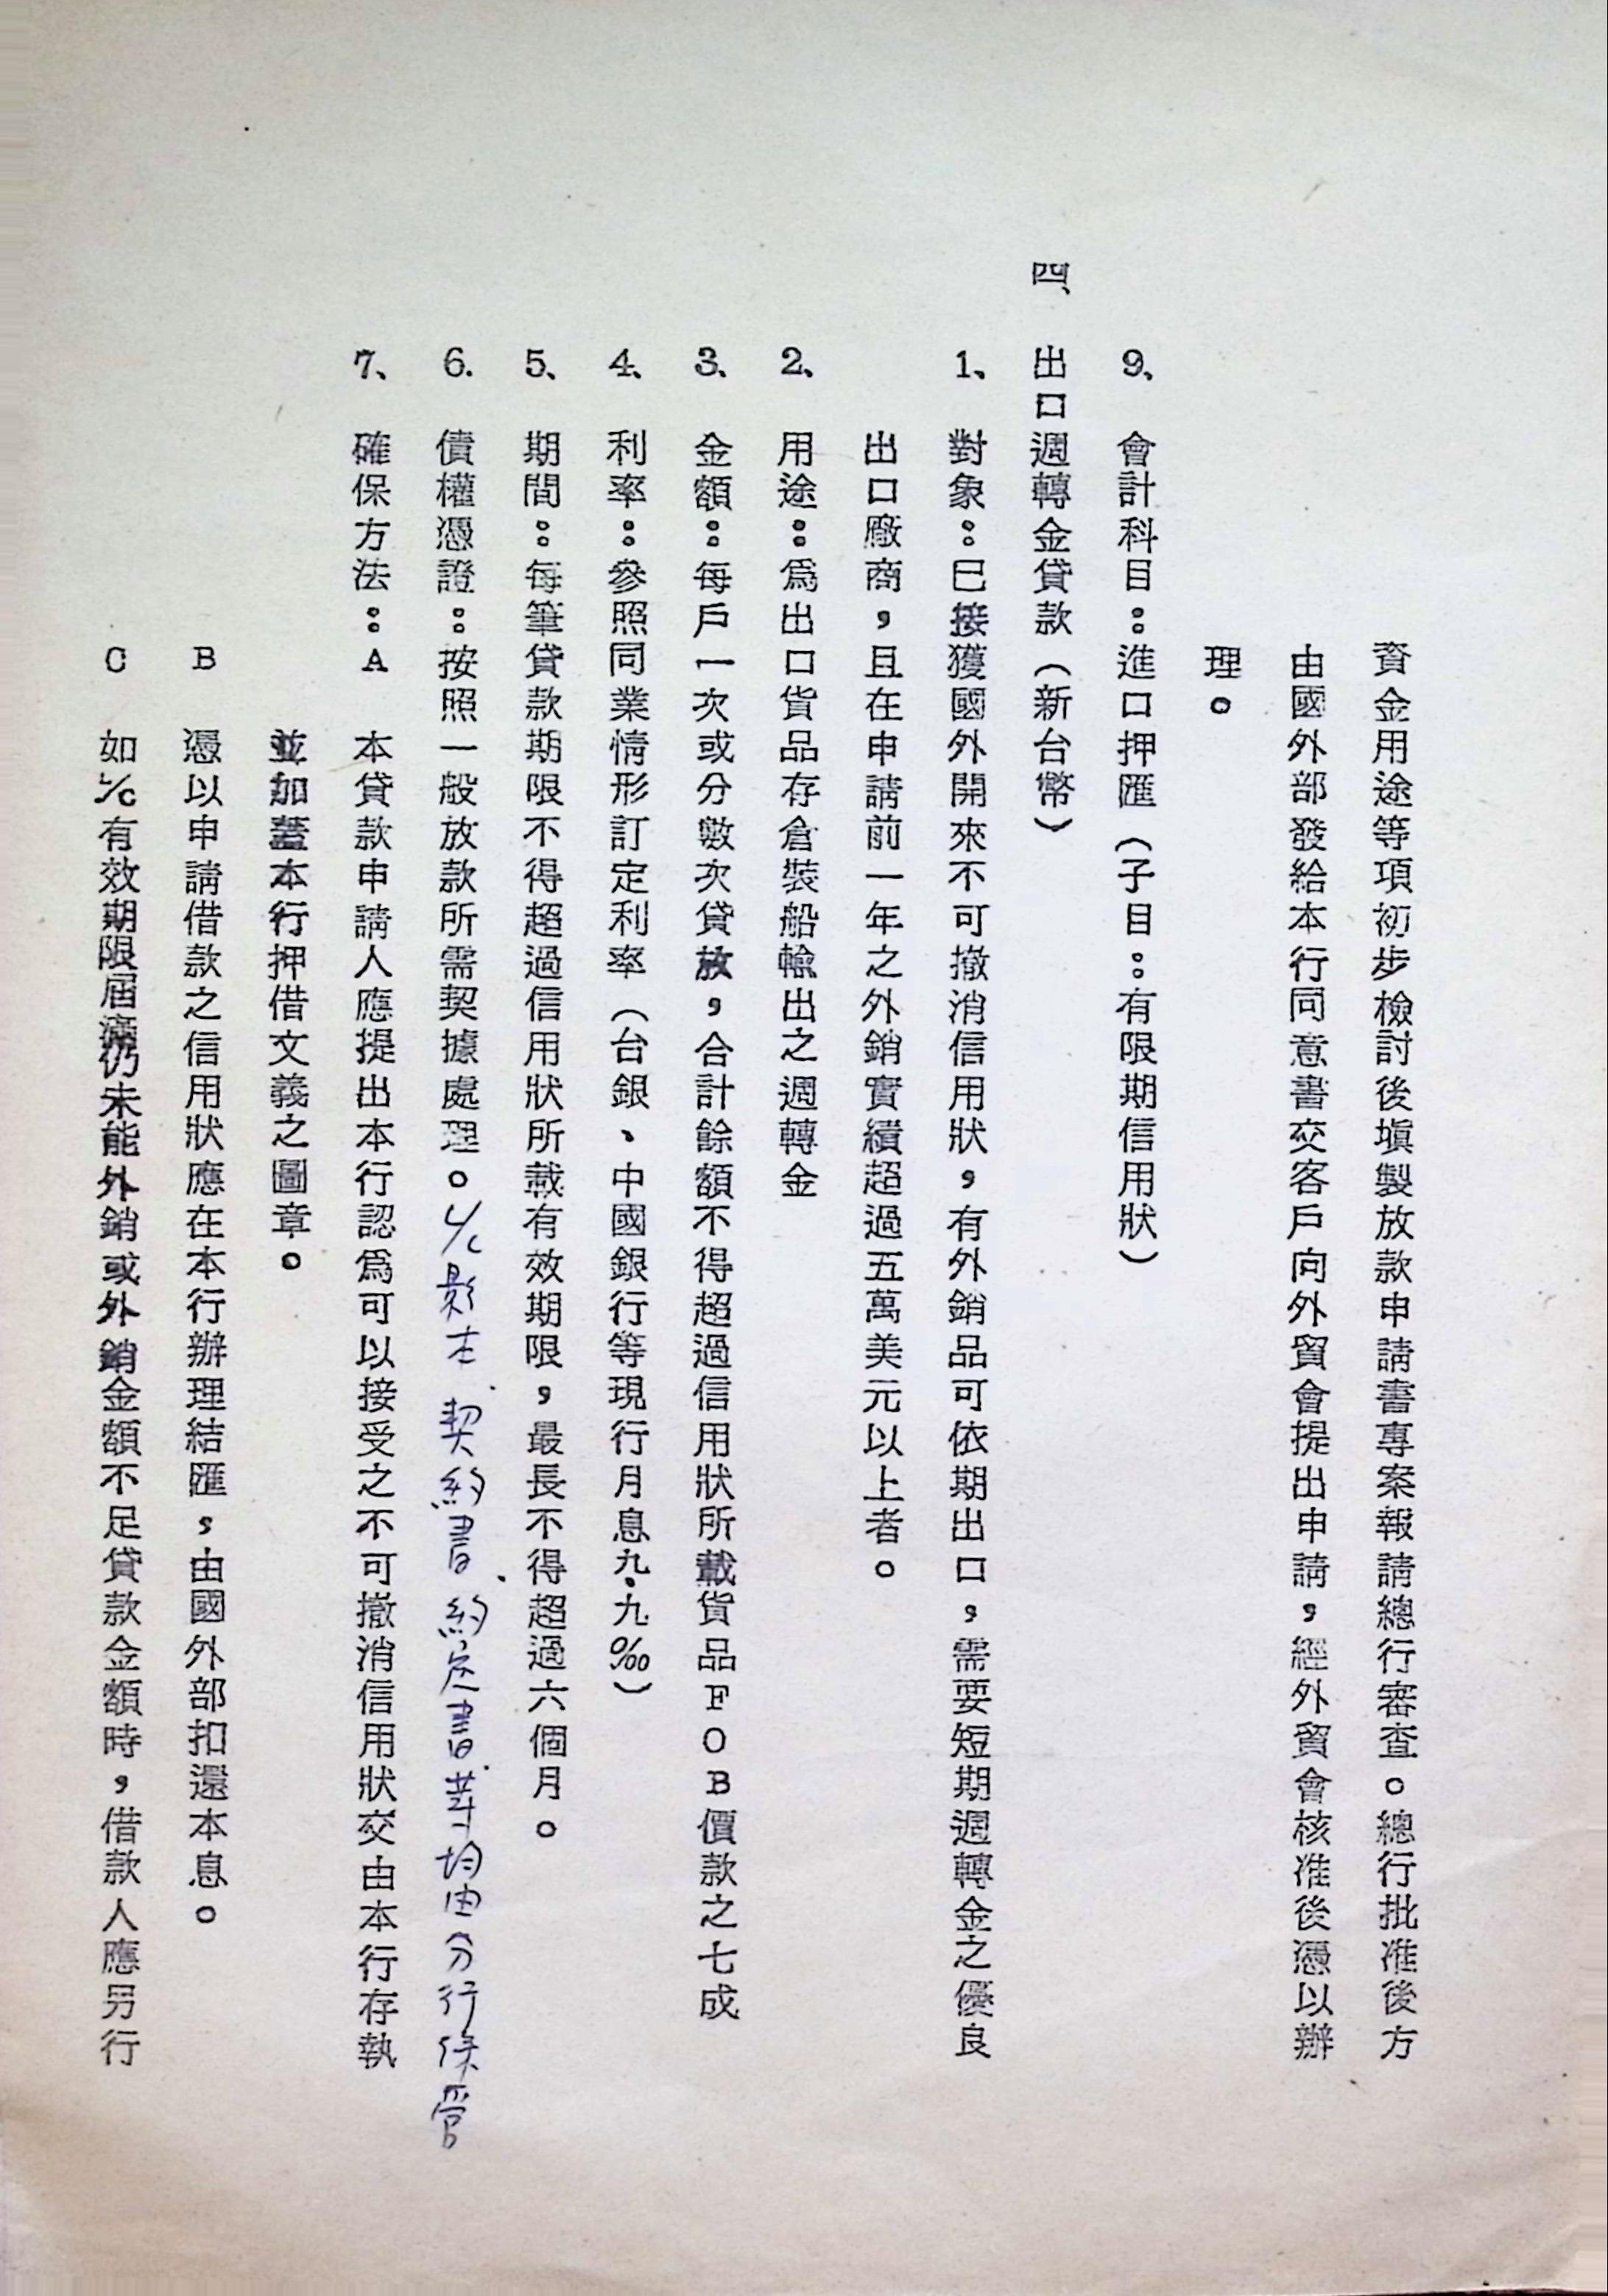 資金用途等項初步檢討後塡製放款申請書專案報請總行審查。總行批准後方
由國外部發給本行同意書交客戶向外貿會提出申請，經外貿會核准後憑以辦
理。
9、會計科目：進口押匯（子目：有限期信用狀）
四、出口週轉金貸款（新台幣）
1、對象：已接獲國外開來不可撤消信用狀，有外銷品可依期出口，需要短期週轉金之優良
出口廠商，且在申請前一年之外銷實績超過五萬美元以上者。
2、用途：爲出口貨品存倉裝船輸出之週轉金
3、金額：每戶一次或分數次貸放，合計餘額不得超過信用狀所載貨品FOB價款之七成
4、利率：參照同業情形訂定利率（台銀、中國銀行等現行月息九．九‰）
5、期間：每筆貸款期限不得超過信用狀所載有效期限，最長不得超過六個月。
6.債權憑證：按照一般放款所需契據處理。L/c影本、契約書、約定書等均由分行保管
7、確保方法：A 本貸款申請人應提出本行認爲可以接受之不可撤消信用狀交由本行存執
並加蓋本行押借文義之圖章。
B 憑以申請借款之信用狀應在本行辦理結匯，由國外部扣還本息。
C 如L/C有效期限屆滿仍未能外銷或外銷金額不足貸款金額時，借款人應另行